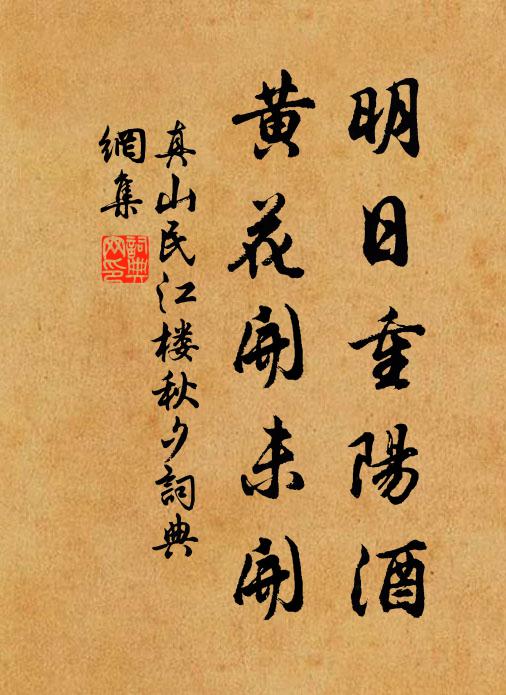 明日重陽酒
黄花開未開
真山民江楼秋夕詞典
網集
詞典
网印